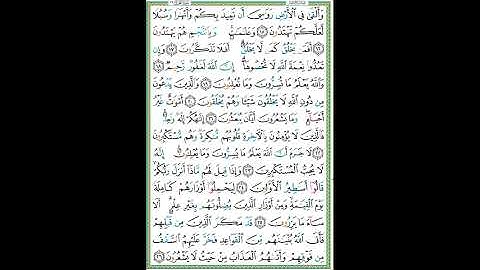 وَأَلْقَىٰ فِى ٱلْأَرْضِ رَوَٰسِىَ أَن تَمِيدَ بِكُمْ وَأَنْهَٰرًا وَسُبُلًا
لَّعَلَّكُمْ تَهْتَدُونَ ١٥ وَعَلَٰمَٰتٍ وَبِٱلنَّجْمِ هُمْ يَهْتَدُونَ
١٦ أَفَمَن يَخْلُقُ كَمَن لَّا يَخْلُقُ أَفَلَا تَذَكَّرُونَ ١٧ وَإِن
تَعُدُّوا۟ نِعْمَةَ ٱللَّهِ لَا تُحْصُوهَآ إِنَّ ٱللَّهَ لَغَفُورٌ رَّحِيمٌ ١٨
وَٱللَّهُ يَعْلَمُ مَا تُسِرُّونَ وَمَا تُعْلِنُونَ ١٩ وَٱلَّذِينَ يَدْعُونَ
مِن دُونِ ٱللَّهِ لَا يَخْلُقُونَ شَيْـًٔا وَهُمْ يُخْلَقُونَ ٢٠ أَمْوَٰتٌ غَيْرُ
أَحْيَآءٍ وَمَا يَشْعُرُونَ أَيَّانَ يُبْعَثُونَ ٢١ إِلَٰهُكُمْ إِلَٰهٌ وَٰحِدٌ
فَٱلَّذِينَ لَا يُؤْمِنُونَ بِٱلْـَٔاخِرَةِ قُلُوبُهُم مُّنكِرَةٌ وَهُم مُّسْتَكْبِرُونَ
٢٢ لَا جَرَمَ أَنَّ ٱللَّهَ يَعْلَمُ مَا يُسِرُّونَ وَمَا يُعْلِنُونَ إِنَّهُۥ
لَا يُحِبُّ ٱلْمُسْتَكْبِرِينَ ٢٣ وَإِذَا قِيلَ لَهُم مَّاذَآ أَنزَلَ رَبُّكُمْ
قَالُوٓا۟ أَسَٰطِيرُ ٱلْأَوَّلِينَ ٢٤ لِيَحْمِلُوٓا۟ أَوْزَارَهُمْ كَامِلَةً
يَوْمَ ٱلْقِيَٰمَةِ وَمِنْ أَوْزَارِ ٱلَّذِينَ يُضِلُّونَهُم بِغَيْرِ عِلْمٍ أَلَا
سَآءَ مَا يَزِرُونَ ٢٥ قَدْ مَكَرَ ٱلَّذِينَ مِن قَبْلِهِمْ
فَأَتَى ٱللَّهُ بُنْيَٰنَهُم مِّنَ ٱلْقَوَاعِدِ فَخَرَّ عَلَيْهِمُ ٱلسَّقْفُ
مِن فَوْقِهِمْ وَأَتَىٰهُمُ ٱلْعَذَابُ مِنْ حَيْثُ لَا يَشْعُرُونَ ٢٦